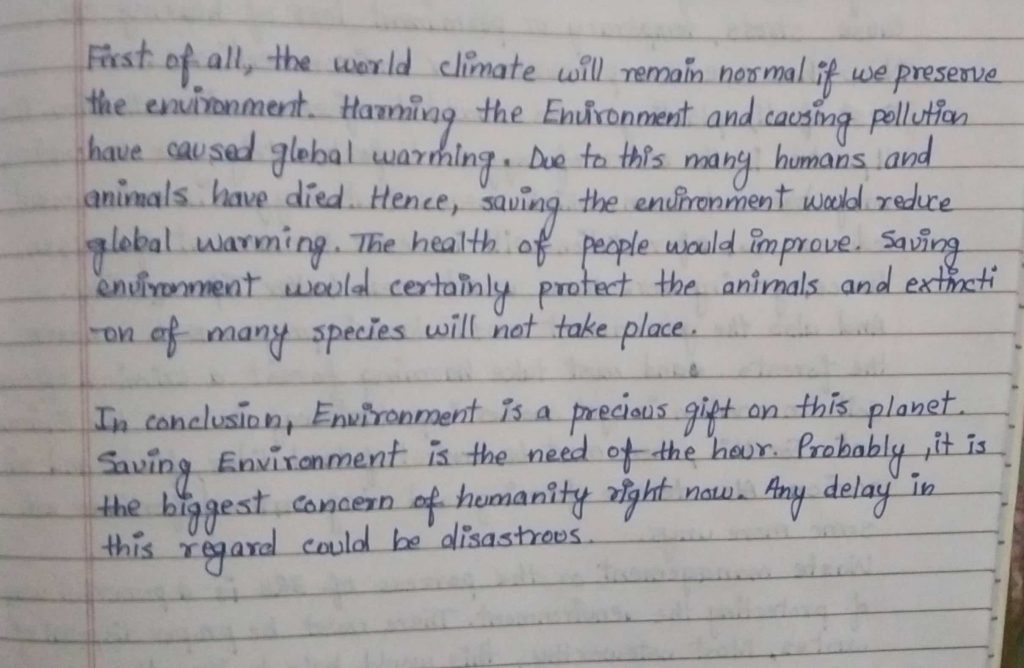 First of all, the world climate will remain normal if we preserve
the environment. Harming the Environment and causing pollution
have caused global warming. Due to this many humans and
animals have died. Hence, saving the environment would reduce
global warming. The health of people would improve. Saving
environment would certainly protect the animals and extincti
-on of many species will not take place.
In conclusion, Environment is a precious gift on this planet.
Saving Environment is the need of the hour. Probably, it is
the biggest concern of humanity right now. Any delay in
this regard could be disastrous.